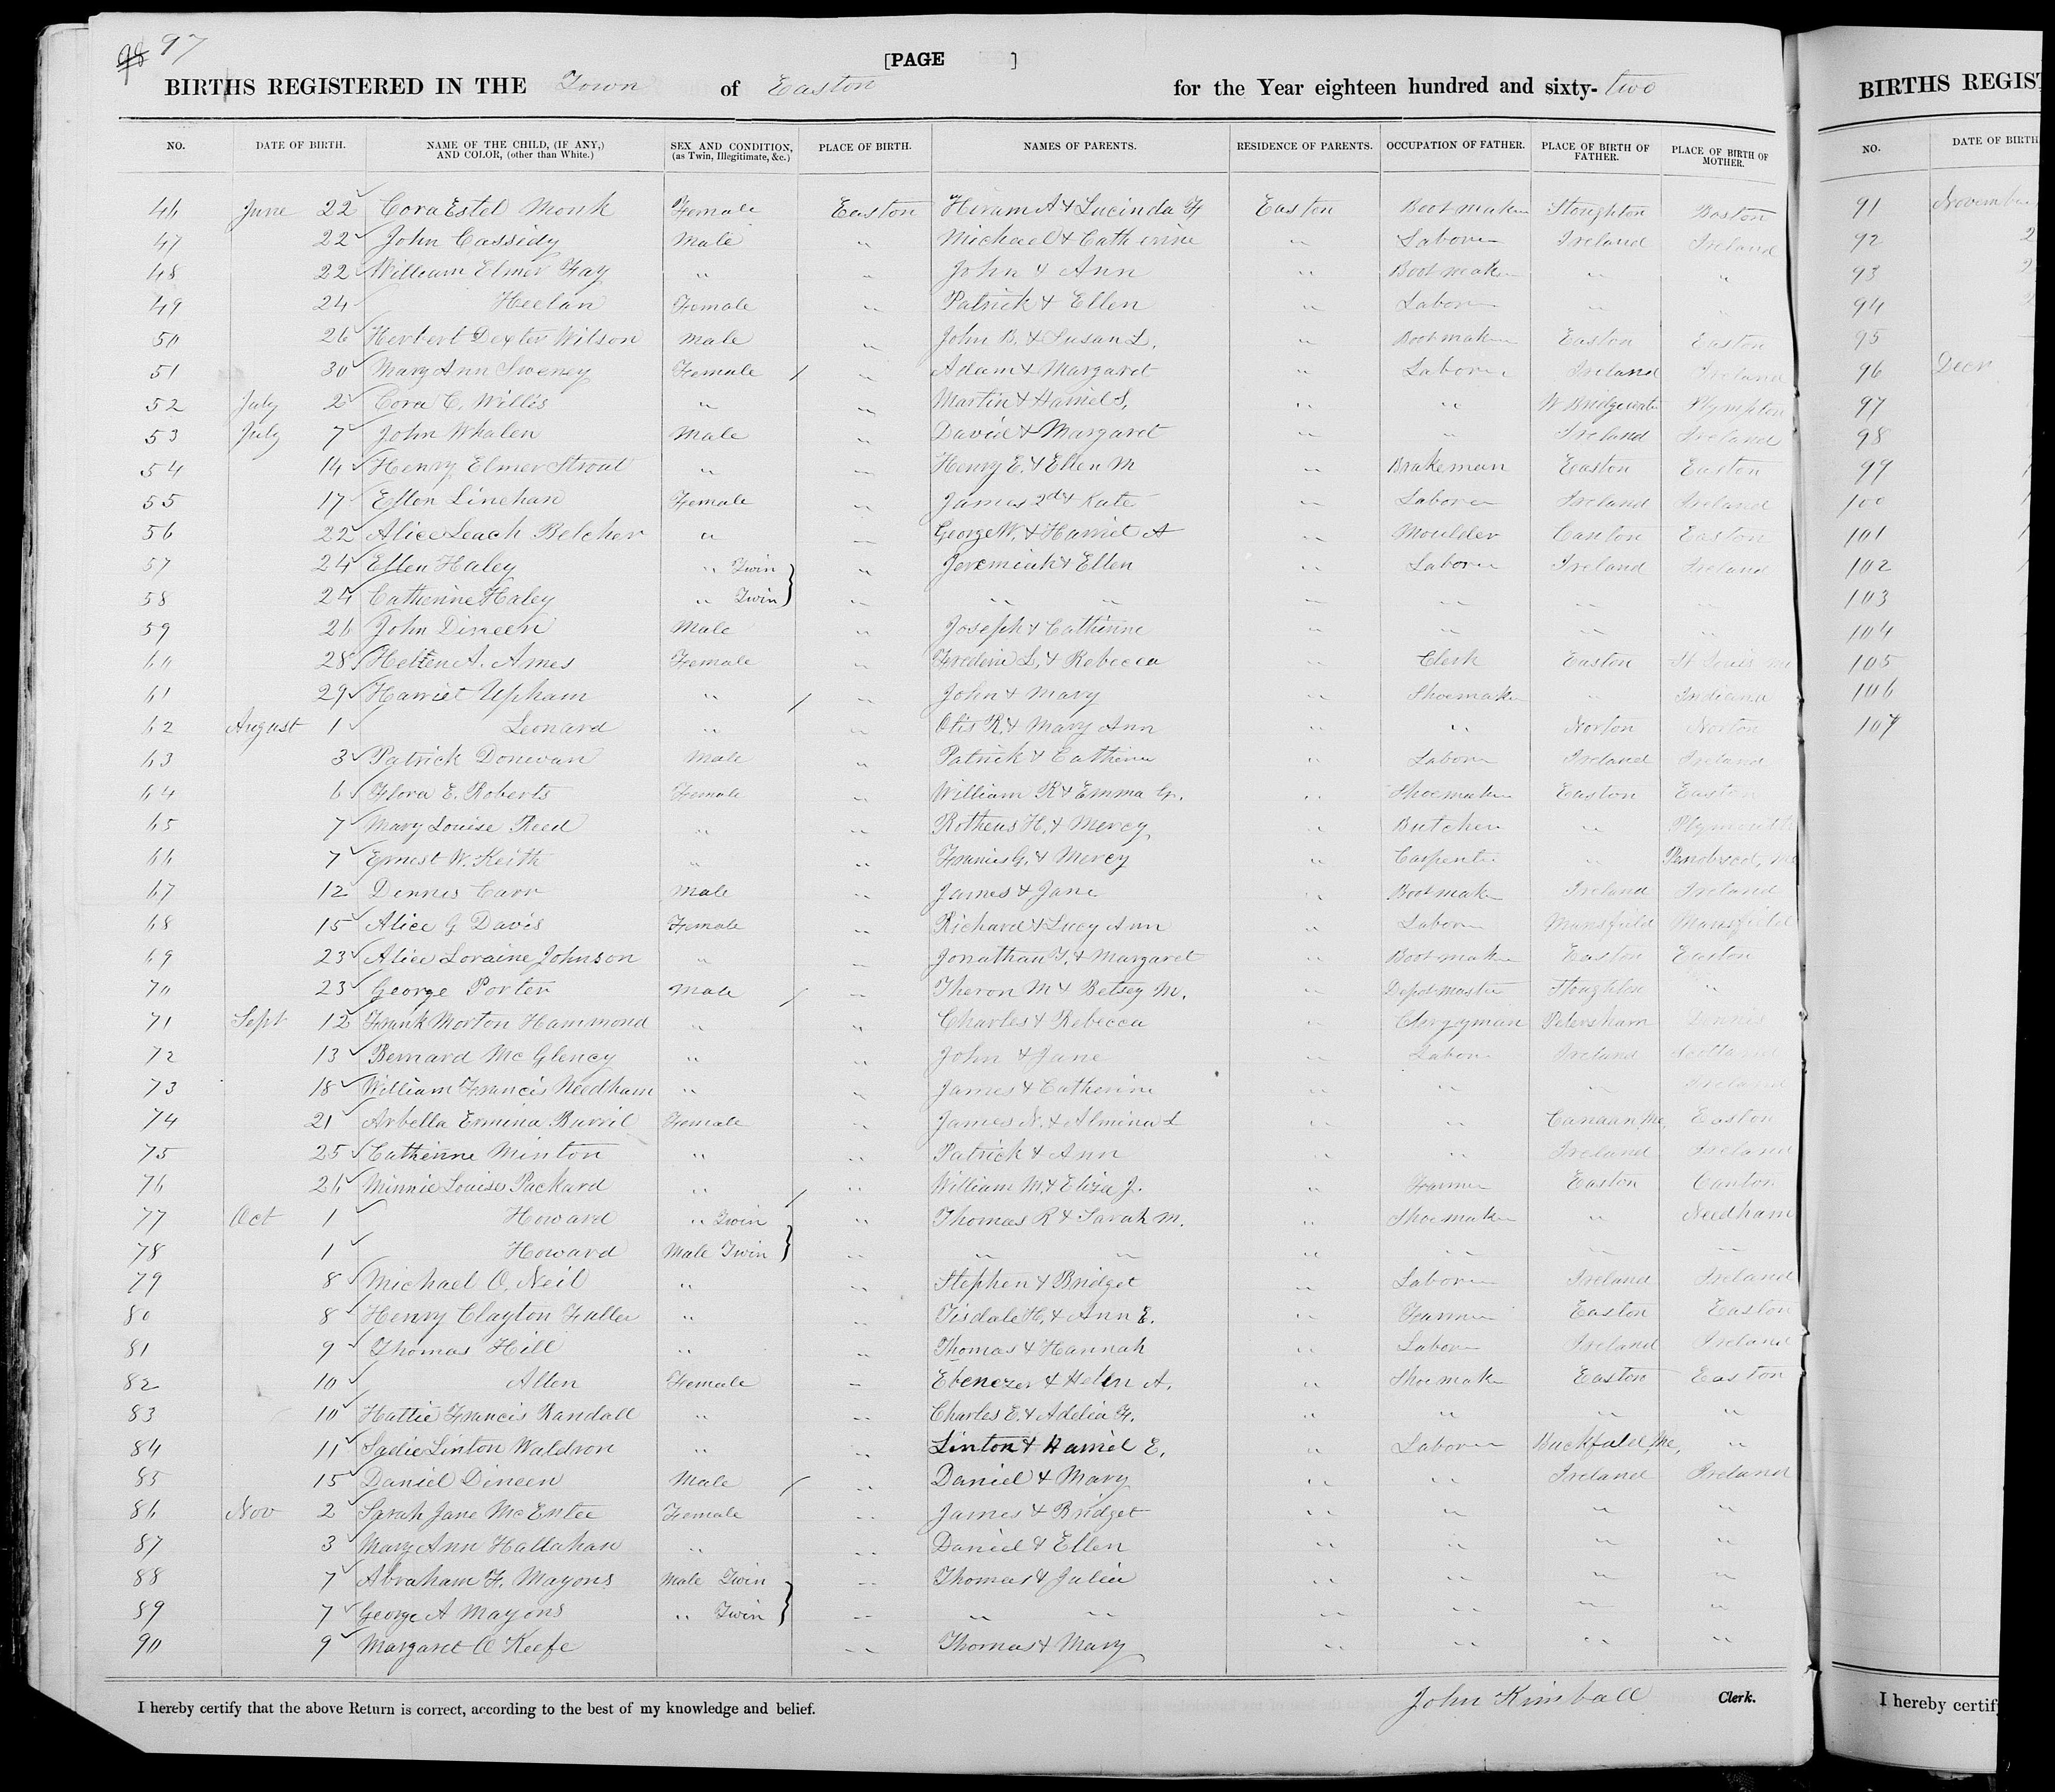 98 97
[PAGE ]
BIRTHS REGISTERED IN THE Town of Easton for the Year eighteen hundred and sixty-two
NO. DATE OF BIRTH. NAME OF THE CHILD, (IF ANY,) AND COLOR, (other than White.) SEX AND CONDITION, (as Twin, Illegitimate, &c.) PLACE OF BIRTH. NAMES OF PARENTS. RESIDENCE OF PARENTS. OCCUPATION OF FATHER. PLACE OF BIRTH OF FATHER. PLACE OF BIRTH OF MOTHER.
46 June 22 Cora Estel Monk Female Easton Hiram A & Lucinda H Easton Bootmaker Stoughton Boston
47 22 John Cassidy Male " Michael & Catherine " Laborer Ireland Ireland
48 22 William Elmer Fay " " John & Ann " Bootmaker " "
49 24 Heelan Female " Patrick & Ellen " Laborer " "
50 26 Herbert Dexter Wilson Male " John B. & Susan L. " Bootmaker Easton Easton
51 30 Mary Ann Sweney Female " Adam & Margaret " Laborer Ireland Ireland
52 July 2 Cora C. Willis " " Martin & Harriet S. " " W Bridgewater Plympton
53 July 7 John Whalen Male " David & Margaret " " Ireland Ireland
54 14 Henry Elmer Strout " " Henry E. & Ellen M " Brakeman Easton Easton
55 17 Ellen Linehan Female " James 2d & Kate " Laborer Ireland Ireland
56 22 Alice Leach Belcher " " George W. & Harriet A " Moulder Canton Easton
57 24 Ellen Haley " Twin " Jeremiah & Ellen " Laborer Ireland Ireland
58 24 Catherine Haley " Twin " " " " " " "
59 26 John Dineen Male " Joseph & Catherine " " " "
60 28 Hellen A. Ames Female " Frederic L. & Rebecca " Clerk Easton St Louis Mo
61 29 Harriet Upham " " John & Mary " Shoemaker " Indiana
62 August 1 Leonard " " Otis R. & Mary Ann " " Norton Norton
63 3 Patrick Donevan Male " Patrick & Catherine " Laborer Ireland Ireland
64 6 Flora E. Roberts Female " William R & Emma G. " Shoemaker Easton Easton
65 7 Mary Louise Reed " " Rotheus H. & Mercy " Butcher " Plymouth
66 7 Ernest W. Keith " " Francis G. & Mercy " Carpenter " Me
67 12 Dennis Carr Male " James & Jane " Bootmaker Ireland Ireland
68 15 Alice G Davis Female " Richard & Lucy Ann " Laborer Mansfield Mansfield
69 23 Alice Loraine Johnson " " Jonathan T. & Margaret " Bootmaker Easton Easton
70 23 George Porter Male " Theron M & Betsey M. " Depot master Stoughton "
71 Sept 12 Frank Morton Hammond " " Charles & Rebecca " Clergyman Petersham Dennis
72 13 Bernard Mc Glency " " John & Jane " Laborer Ireland Scotland
73 18 William Francis Needham " " James & Catherine " " " Ireland
74 21 Arbella Ermina Burril Female " James N. & Almina L " " Canaan, Me, Easton
75 25 Catherine Minton " " Patrick & Ann " " Ireland Ireland
76 26 Minnie Louise Packard " " William M. & Eliza J. " Farmer Easton Canton
77 Oct 1 Howard " Twin " Thomas R & Sarah M. " Shoemaker " Needham
78 1 Howard Male Twin " " " " " " "
79 8 Michael O, Neil " " Stephen & Bridget " Laborer Ireland Ireland
80 8 Henry Clayton Fuller " " Tisdale H. & Ann E. " Farmer Easton Easton
81 9 Thomas Hill " " Thomas & Hannah " Laborer Ireland Ireland
82 10 Allen Female " Ebenezer & Helen A. " Shoemaker Easton Easton
83 10 Hattie Francis Randall " " Charles E. & Adelia F. " " " "
84 11 Sadie Linton Waldron " " Linton & Harriet E. " Laborer Buckfield, Me, "
85 15 Daniel Dineen Male " Daniel & Mary " " Ireland Ireland
86 Nov 2 Sarah Jane McEntee Female " James & Bridget " " " "
87 3 Mary Ann Hallahan " " Daniel & Ellen " " " "
88 7 Abraham F. Mayons Male Twin " Thomas & Julia " " " "
89 7 George A Mayons " Twin " " " " " " "
90 9 Margaret O Keefe " Thomas & Mary " " " "
I hereby certify that the above Return is correct, according to the best of my knowledge and belief. John Kimball Clerk.
BIRTHS REGIST
NO. DATE OF BIRTH
91 November
92 2
93 2
94 2
95
96 Decr
97
98
99
100
101
102
103
104
105
106
107
I hereby certify